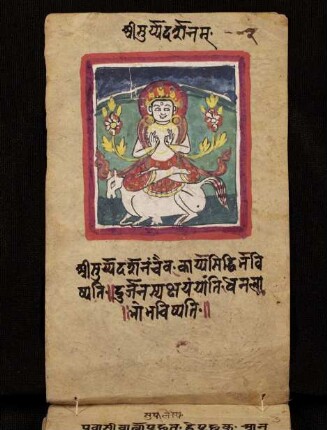 श्रीसुर्य्यदर्शनम्·—१
श्रीसुर्य्यदर्शनंचैव·कार्य्यसिद्धिर्भवि
ष्यति·॥दुर्जनस्यक्षयंयांति·धनला
॥भोभविष्यति·॥